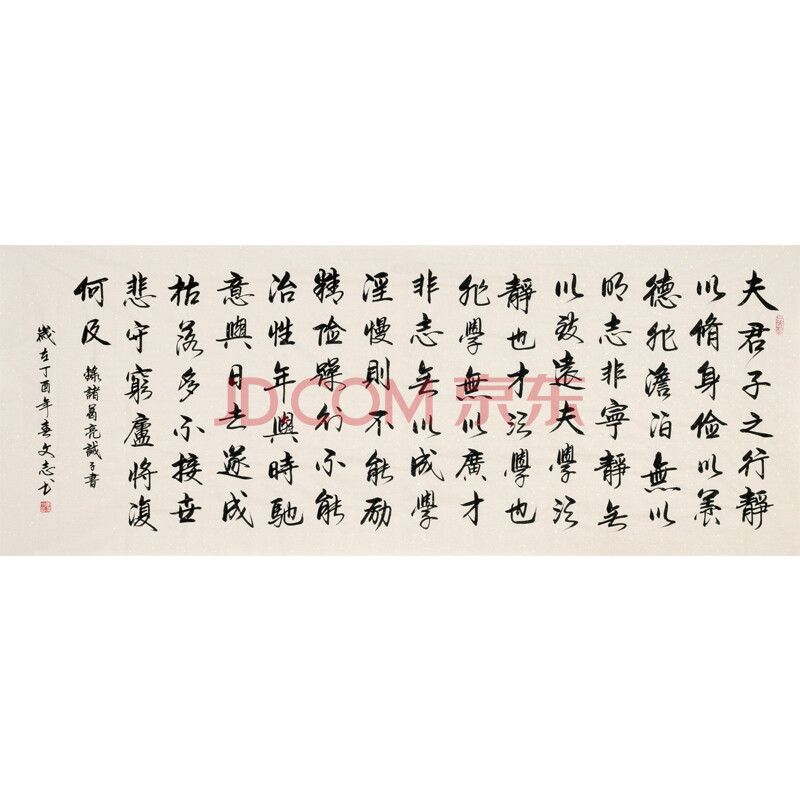 夫君子之行靜
以脩身俭以養
德非澹泊無以
明志非寧靜无
以致遠夫學须
靜也才须學也
非學無以廣才
非志无以成學
淫慢則不能励
精险躁则不能
冶性年與時馳
意與日去遂成
枯落多不接世
悲守窮廬將復
何及
錄諸葛亮誡子書
歲在丁酉年春文志书
JD.COM 京东